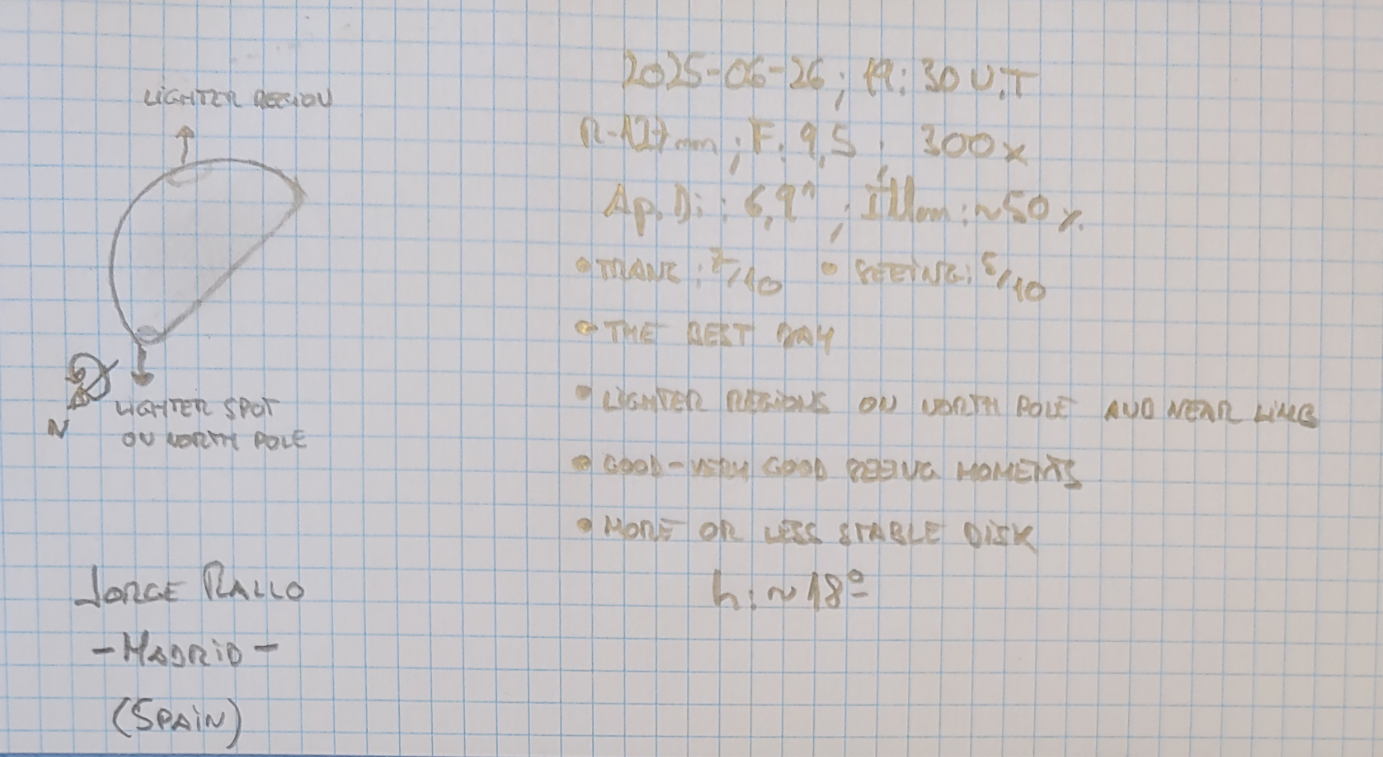 LIGHTER REGION
LIGHTER SPOT
ON NORTH POLE
N
JORGE RALLO
-MADRID-
(SPAIN)
2025-06-26; 19:30 U.T
R-127mm; F: 9,5; 300x
Ap. Di: 6,9"; Illum: ~50%
• TRANS: /10 • SEEING: /10
• THE BEST DAY
• LIGHTER REGIONS ON NORTH POLE AND NEAR LIMB
• GOOD-VERY GOOD SEEING MOMENTS
• MORE OR LESS STABLE DISK
h: ~18º